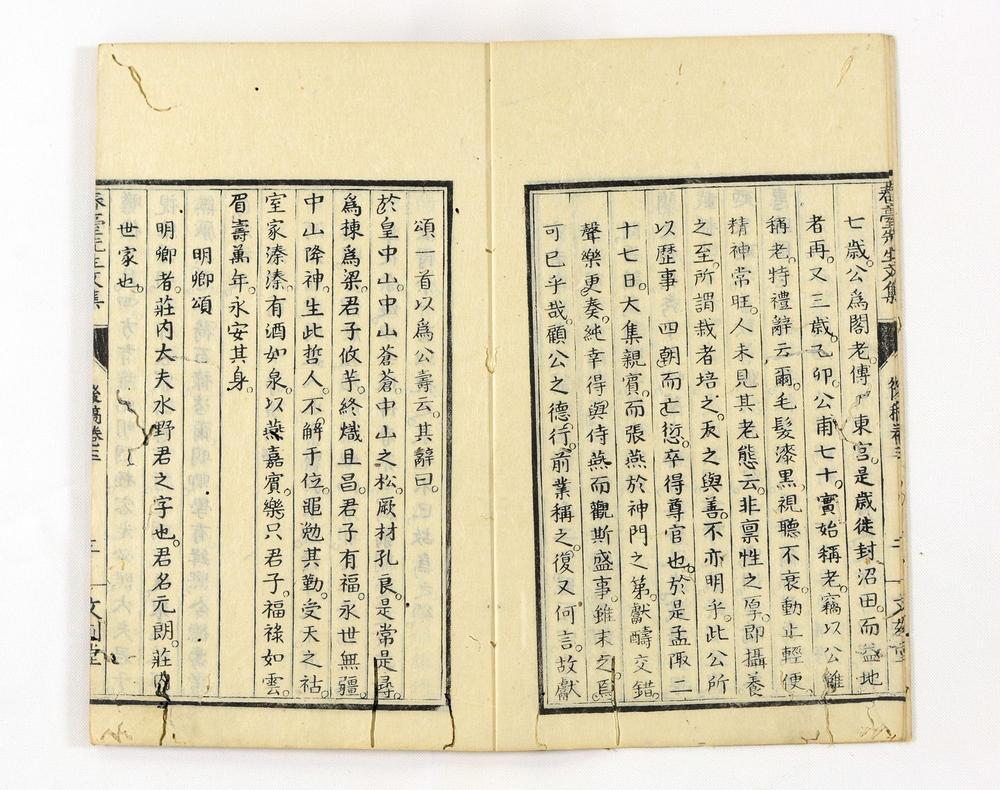 七歲。公爲閣老。傅東宮。是歲徙封沼田。而益地
者再。又三歲。乙卯。公甫七十。實始稱老。竊以公雖
稱老。特禮辭云爾。毛髮漆黑。視聽不衰。動止輕便。
精神常旺。人未見其老態云。非稟性之厚。卽攝養
之至。所謂栽者培之。天之與善。不亦明乎。此公所
以歷事 四朝。而亡愆。卒得尊官也。於是孟陬二
十七日。大集親賓。而張燕於神門之第。獻醻交錯。
聲樂更奏。純幸得與侍燕。而觀斯盛事。雖末之焉
可已乎哉。顧公之德行。前業稱之。復又何言。故獻
頌一首以爲公壽云。其辭曰。
於皇中山。中山蒼蒼。中山之松。厥材孔良。是常是尋。
爲棟爲梁。君子攸芋。終熾且昌。君子有福。永世無疆。
中山降神。生此哲人。不解于位。黽勉其勤。受天之祜。
室家溱溱。有酒如泉。以燕嘉賓。樂只君子。福祿如雲。
眉壽萬年。永安其身。
明卿頌
明卿者。莊內大夫水野君之字也。君名元朗。莊內
世家也。
後稿卷三